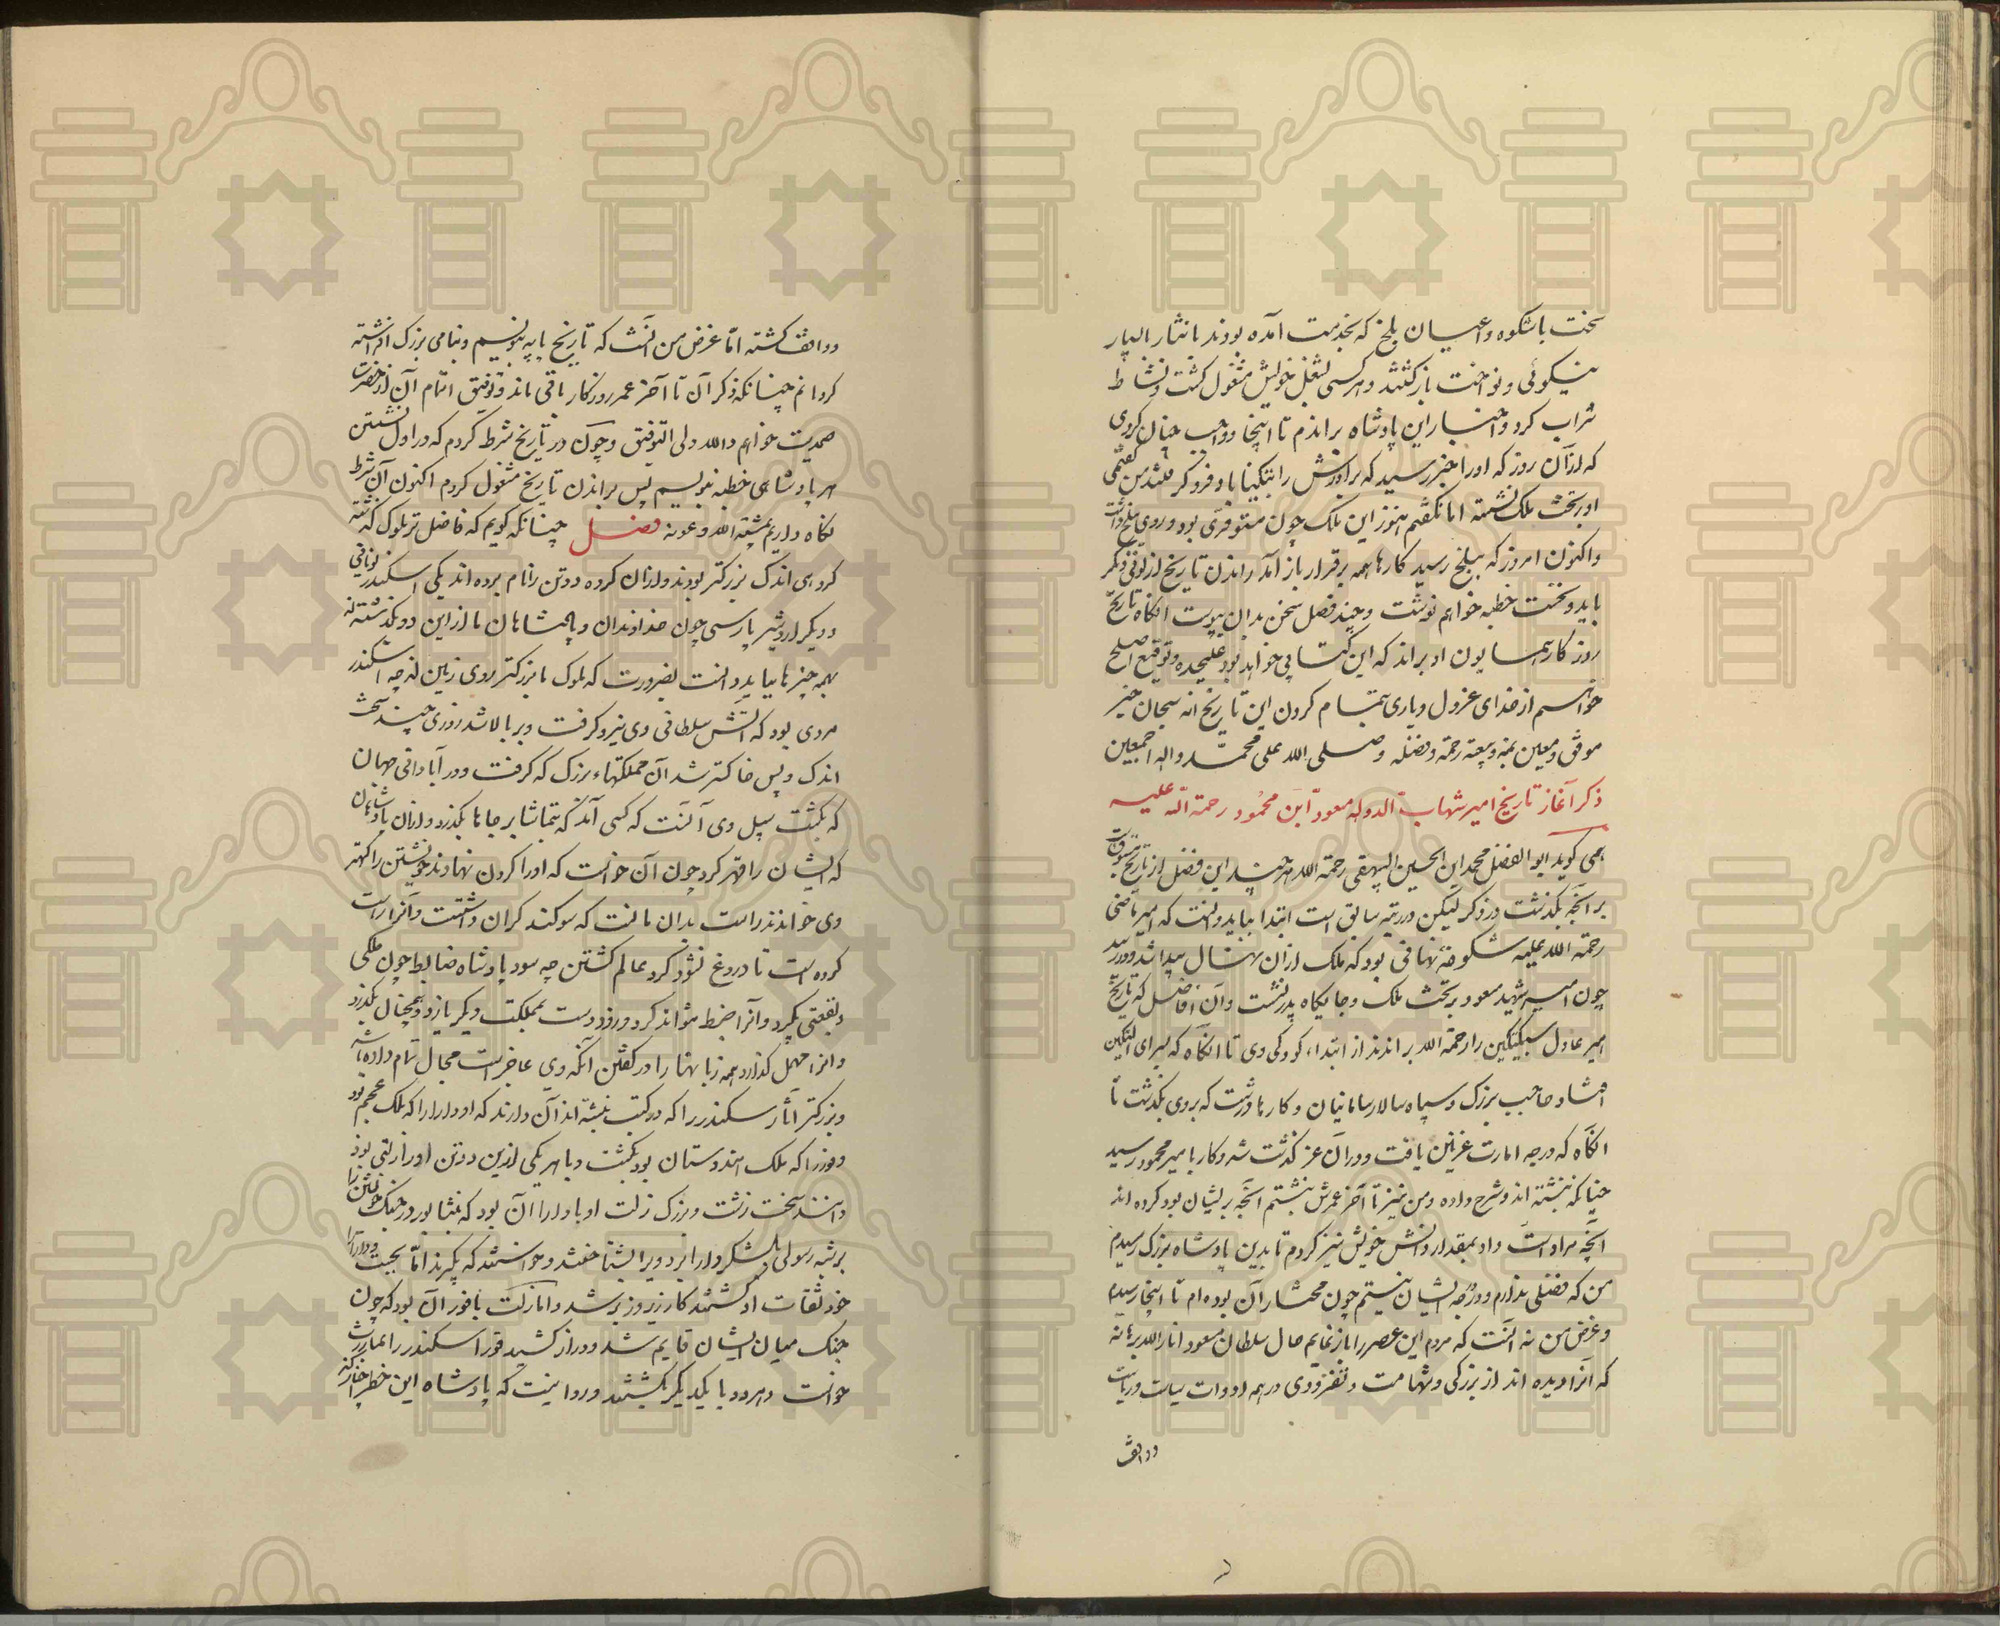 سخت باشکوه و اعیان بلخ که بخدمت آمده بودند با نثار بسیار
نیکوئی و نواخت بازگشتند و هر کسی بشغل خویش مشغول گشت و نشاط
شراب کرد و اخبار این پادشاه براندم تا اینجا و واجب چنان کردی
که از آن روز که او را خبر رسید که برادرش را بتکیناباد فرو گرفتند من گفتمی
او بر تخت ملک نشسته اما نگفتم هنوز این ملک چون مستوفزی بود و روی ببلخ داشت
و اکنون امروز که ببلخ رسید کارها همه برقرار باز آمد راندن تاریخ از لونی دیگر
باید و نخست خطبه خواهم نوشت و چند فصل سخن بدان پیوست آنگاه تاریخ
روزگار همایون او براند که این کتابی خواهد بود علیحده و توفیق اصلح
خواهم از خدای عزوجل و یاری بتمام کردن این تاریخ انه سبحان خیر
موفق و معین بمنه و سعة رحمته و فضله و صلی الله علی محمد و اله اجمعین
ذکر آغاز تاریخ امیر شهاب الدوله مسعود ابن محمود رحمة الله علیه
همی گوید ابوالفضل محمد ابن الحسین البیهقی رحمة الله هر چند این فصل از تاریخ مسبوقست
بر آنچه بگذشت در ذکر لیکن در رتبه سابق است ابتدا بباید دانست که امیر ماضی
رحمة الله علیه شکوفه نهانی بود که ملک از آن نهال پیدا شد و در رسید
چون امیر شهید مسعود بر تخت ملک و جایگاه پدر نشست و آن افاضل که تاریخ
امیر عادل سبکتگین را رحمة الله براندند از ابتداء کودکی وی تا آنگاه که بسرای البتگین
افتاد و حاجب بزرک و سپاه سالار سامانیان و کارها درشت که بروی بگذشت تا
آنگاه که درجه امارت غزنین یافت و در آن عز گذشته شد و کار با میر محمود رسید
چنانکه نبشته اند و شرح داده و من نیز تا آخر عمرش نبشتم آنچه بر ایشان بود کرده اند
آنچه مرا دست داد بمقدار دانش خویش نیز کردم تا بدین پادشاه بزرک رسیدم
من که فضلی ندارم و در درجه ایشان نیستم چون مجتازان بوده ام تا اینجا رسیدم
و غرض من نه آنست که مردم این عصر را باز نمایم حال سلطان مسعود انار الله برهانه
که آنرا دیده اند از بزرگی و شهامت و تفرد وی در همه ادوات سیاست و ریاست
و واقف
و واقف گشته اما غرض من آنست که تاریخ پایه بنویسم و بنامی بزرک افراشته
گردانم چنانکه ذکر آن تا آخر عمر روزگار باقی ماند و توفیق اتمام آن از حضرت
صمدیت خواهم والله ولی التوفیق و چون در تاریخ شرط کردم که در اول نشستن
هر پادشاهی خطبه بنویسم پس براندن تاریخ مشغول گردم اکنون آن شرط
نگاه داریم بمشیة الله و عونه فصل چنانکه گویم که فاضل تر ملوک گذشته
گروهی اند که بزرگتر بودند و از آن گروه دو تن را نام برده اند یکی اسکندر یونانی
و دیگر اردشیر پارسی چون خداوندان و پادشاهان ما از این دو بگذشته اند
بهمه چیزها بباید دانست بضرورت که ملوک ما بزرگتر روی زمین اند چه اسکندر
مردی بود که آتش سلطانی وی نیرو گرفت و بر بالا شد روزی چند سخت
اندک و پس خاکستر شد آن مملکتهاء بزرک که گرفت و در آبادانی جهان
که بگشت سبیل وی آنست که کسی آید که بتماشا بر جاها بگذرد و از آن پادشاهان
که ایشان را قهر کرد چون آن خواست که او را گردن نهادند و خویشتن را کهتر
وی خواندند راست بدان مانست که سوگند گران داشتست و آنرا راست
کرده است تا دروغ نشود گرد عالم گشتن چه سود پادشاه ضابط چون ملکی
و بقعتی بگیرد و آنرا ضبط نتواند کرد و زود دست بمملکت دیگر یازد و همچنان بگذرد
و آنرا مهمل گذارد همه زبانها را در گفتن آنکه وی عاجز است مجال تمام داده باشد
و بزرکتر آثار سکندر را که در کتب نبشته اند آن دارند که او دارا را که ملک عجم بود
و فور را که ملک هندوستان بود بکشت و با هر یکی ازین دو تن او را زلتی بود
دانند سخت زشت و بزرک زلت او با دارا آن بود که بنشابور در جنک خویشتن را
برشبه رسولی بلشکر دارا برد ویرا بشناختند و خواستند که بگیرند اما بجست و دارا را
خود ثقات او کشتند کار زیر و زبر شد و اما زلت با فور آن بود که چون
جنک میان ایشان قایم شد و دراز کشید فور اسکندر را بمبارزت
خواست و هر دو با یکدیگر بگشتند و روا نیست که پادشاه این خطر اختیار کند